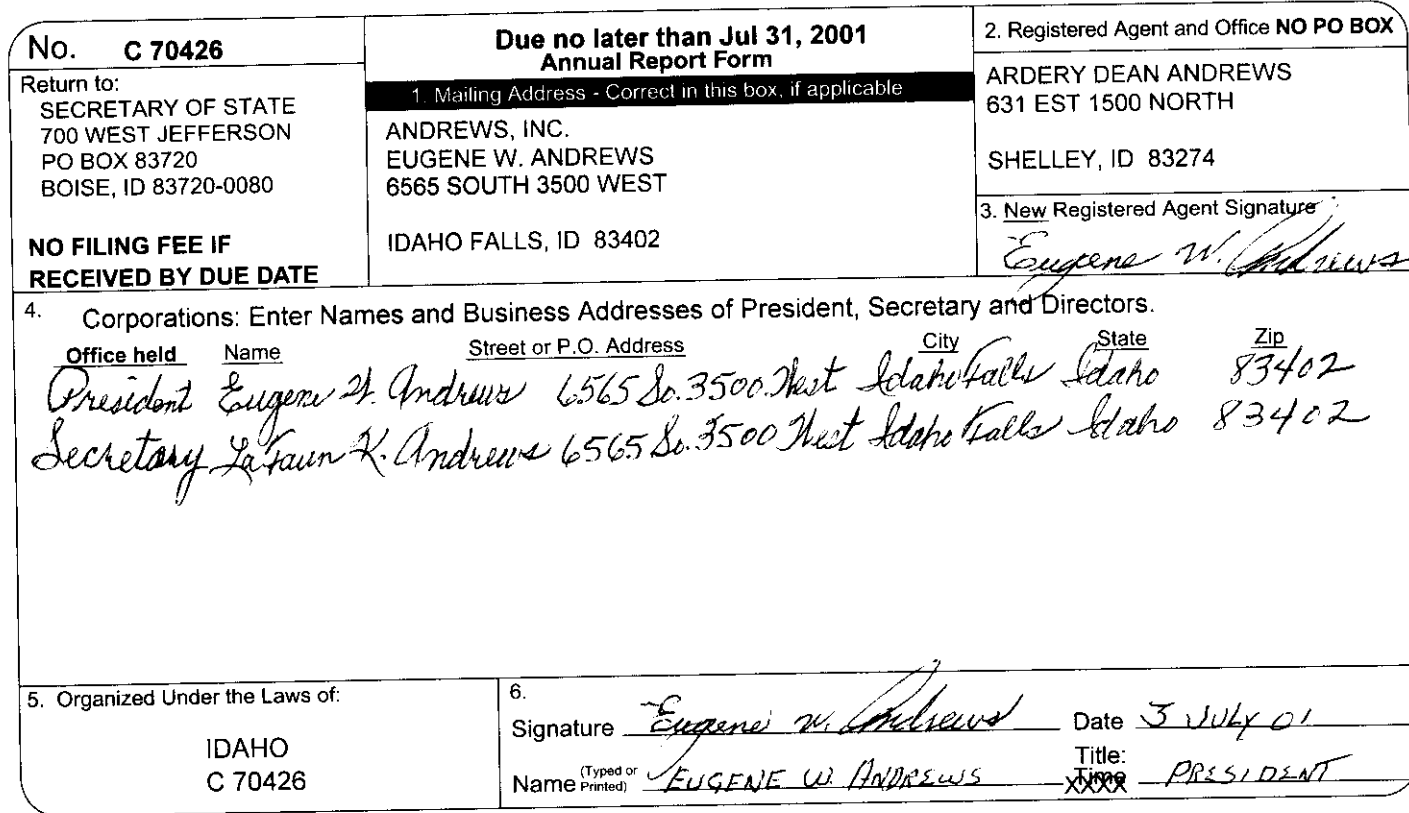 No. C 70426
Return to:
SECRETARY OF STATE
700 WEST JEFFERSON
PO BOX 83720
BOISE, ID 83720-0080
NO FILING FEE IF
RECEIVED BY DUE DATE
Due no later than Jul 31, 2001
Annual Report Form
1. Mailing Address - Correct in this box, if applicable
ANDREWS, INC.
EUGENE W. ANDREWS
6565 SOUTH 3500 WEST
IDAHO FALLS, ID 83402
2. Registered Agent and Office NO PO BOX
ARDERY DEAN ANDREWS
631 EST 1500 NORTH
SHELLEY, ID 83274
3. New Registered Agent Signature
Eugene W. Andrews
4. Corporations: Enter Names and Business Addresses of President, Secretary and Directors.
Office held Name Street or P.O. Address City State Zip
President Eugene W. Andrews 6565 So. 3500 West Idaho Falls Idaho 83402
Secretary LaFaun K. Andrews 6565 So. 3500 West Idaho Falls Idaho 83402
5. Organized Under the Laws of:
IDAHO
C 70426
6.
Signature Eugene W. Andrews Date 3 JULY 01
Name (Typed or Printed) EUGENE W. ANDREWS Title: PRESIDENT
XXXX Time